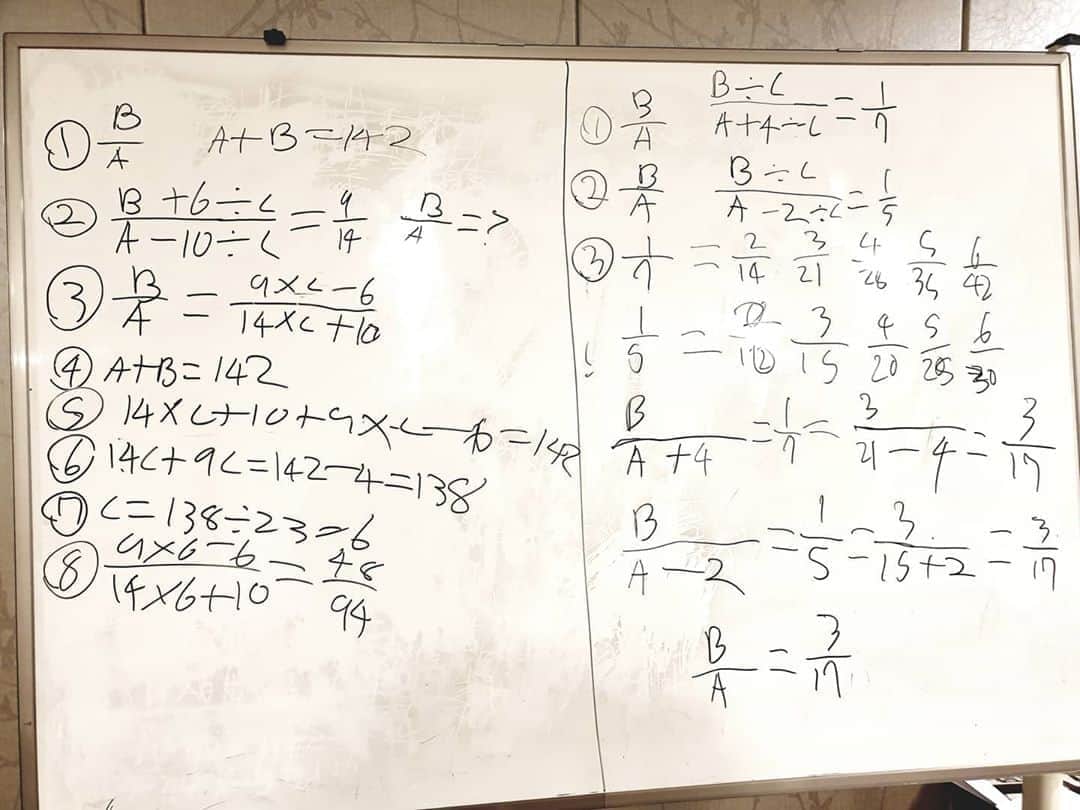 ① B/A A+B=142
② B+6÷C/A-10÷C = 9/14 B/A=?
③ B/A = 9×C-6/14×C+10
④ A+B=142
⑤ 14×C+10+9×C-6=142
⑥ 14C+9C=142-4=138
⑦ C=138÷23=6
⑧ 9×6-6/14×6+10 = 48/94
① B/A B÷C/A+4÷C = 1/7
② B/A B÷C/A-2÷C = 1/5
③ 1/7 = 2/14 3/21 4/28 5/35 6/42
1/5 = 2/10 3/15 4/20 5/25 6/30
B/A+4 = 1/7 = 3/21-4 = 3/17
B/A-2 = 1/5 = 3/15+2 = 3/17
B/A = 3/17